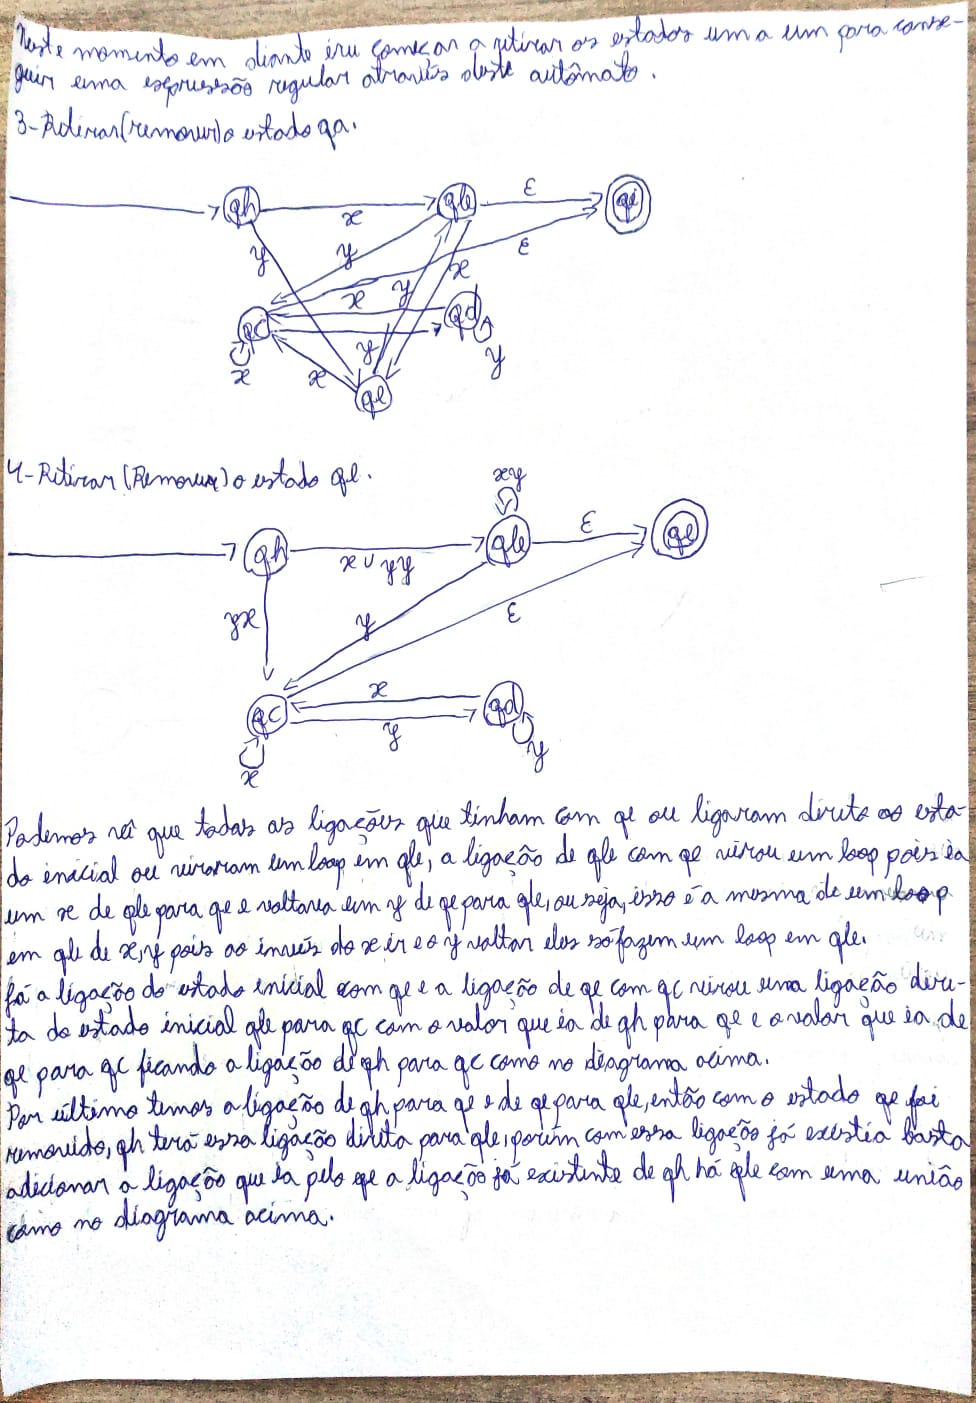 Neste momento em diante irei começar a retirar os estados um a um para conse-
guir uma expressão regular através deste autômato.
3-Retirar(remover) o estado qa.
qh x qb ε qi
y y ε
x y x
qc qd
y y
x x
qe
4-Retirar (Remover) o estado qe.
xy
qh x∪yy qb ε qi
yx y ε
qc x qd
y y
x
Podemos ver que todas as ligações que tinham com qe ou ligaram direto ao esta-
do inicial ou viraram um loop em qb, a ligação de qb com qe virou um loop pois ia
um x de qb para qe e voltava um y de qe para qb, ou seja, isso é a mesma de um loop
em qb de x,y pois ao invés do x ir e o y voltar eles só fazem um loop em qb.
Já a ligação do estado inicial com qe e a ligação de qe com qc virou uma ligação dire-
ta do estado inicial qb para qc com o valor que ia de qh para qe e o valor que ia de
qe para qc ficando a ligação de qh para qc como no diagrama acima.
Por último temos a ligação de qh para qe e de qe para qb, então com o estado qe foi
removido, qh terá essa ligação direta para qb, porém com essa ligação já existia basta
adicionar a ligação que ia pelo qe a ligação já existente de qh há qb com uma união
como no diagrama acima.